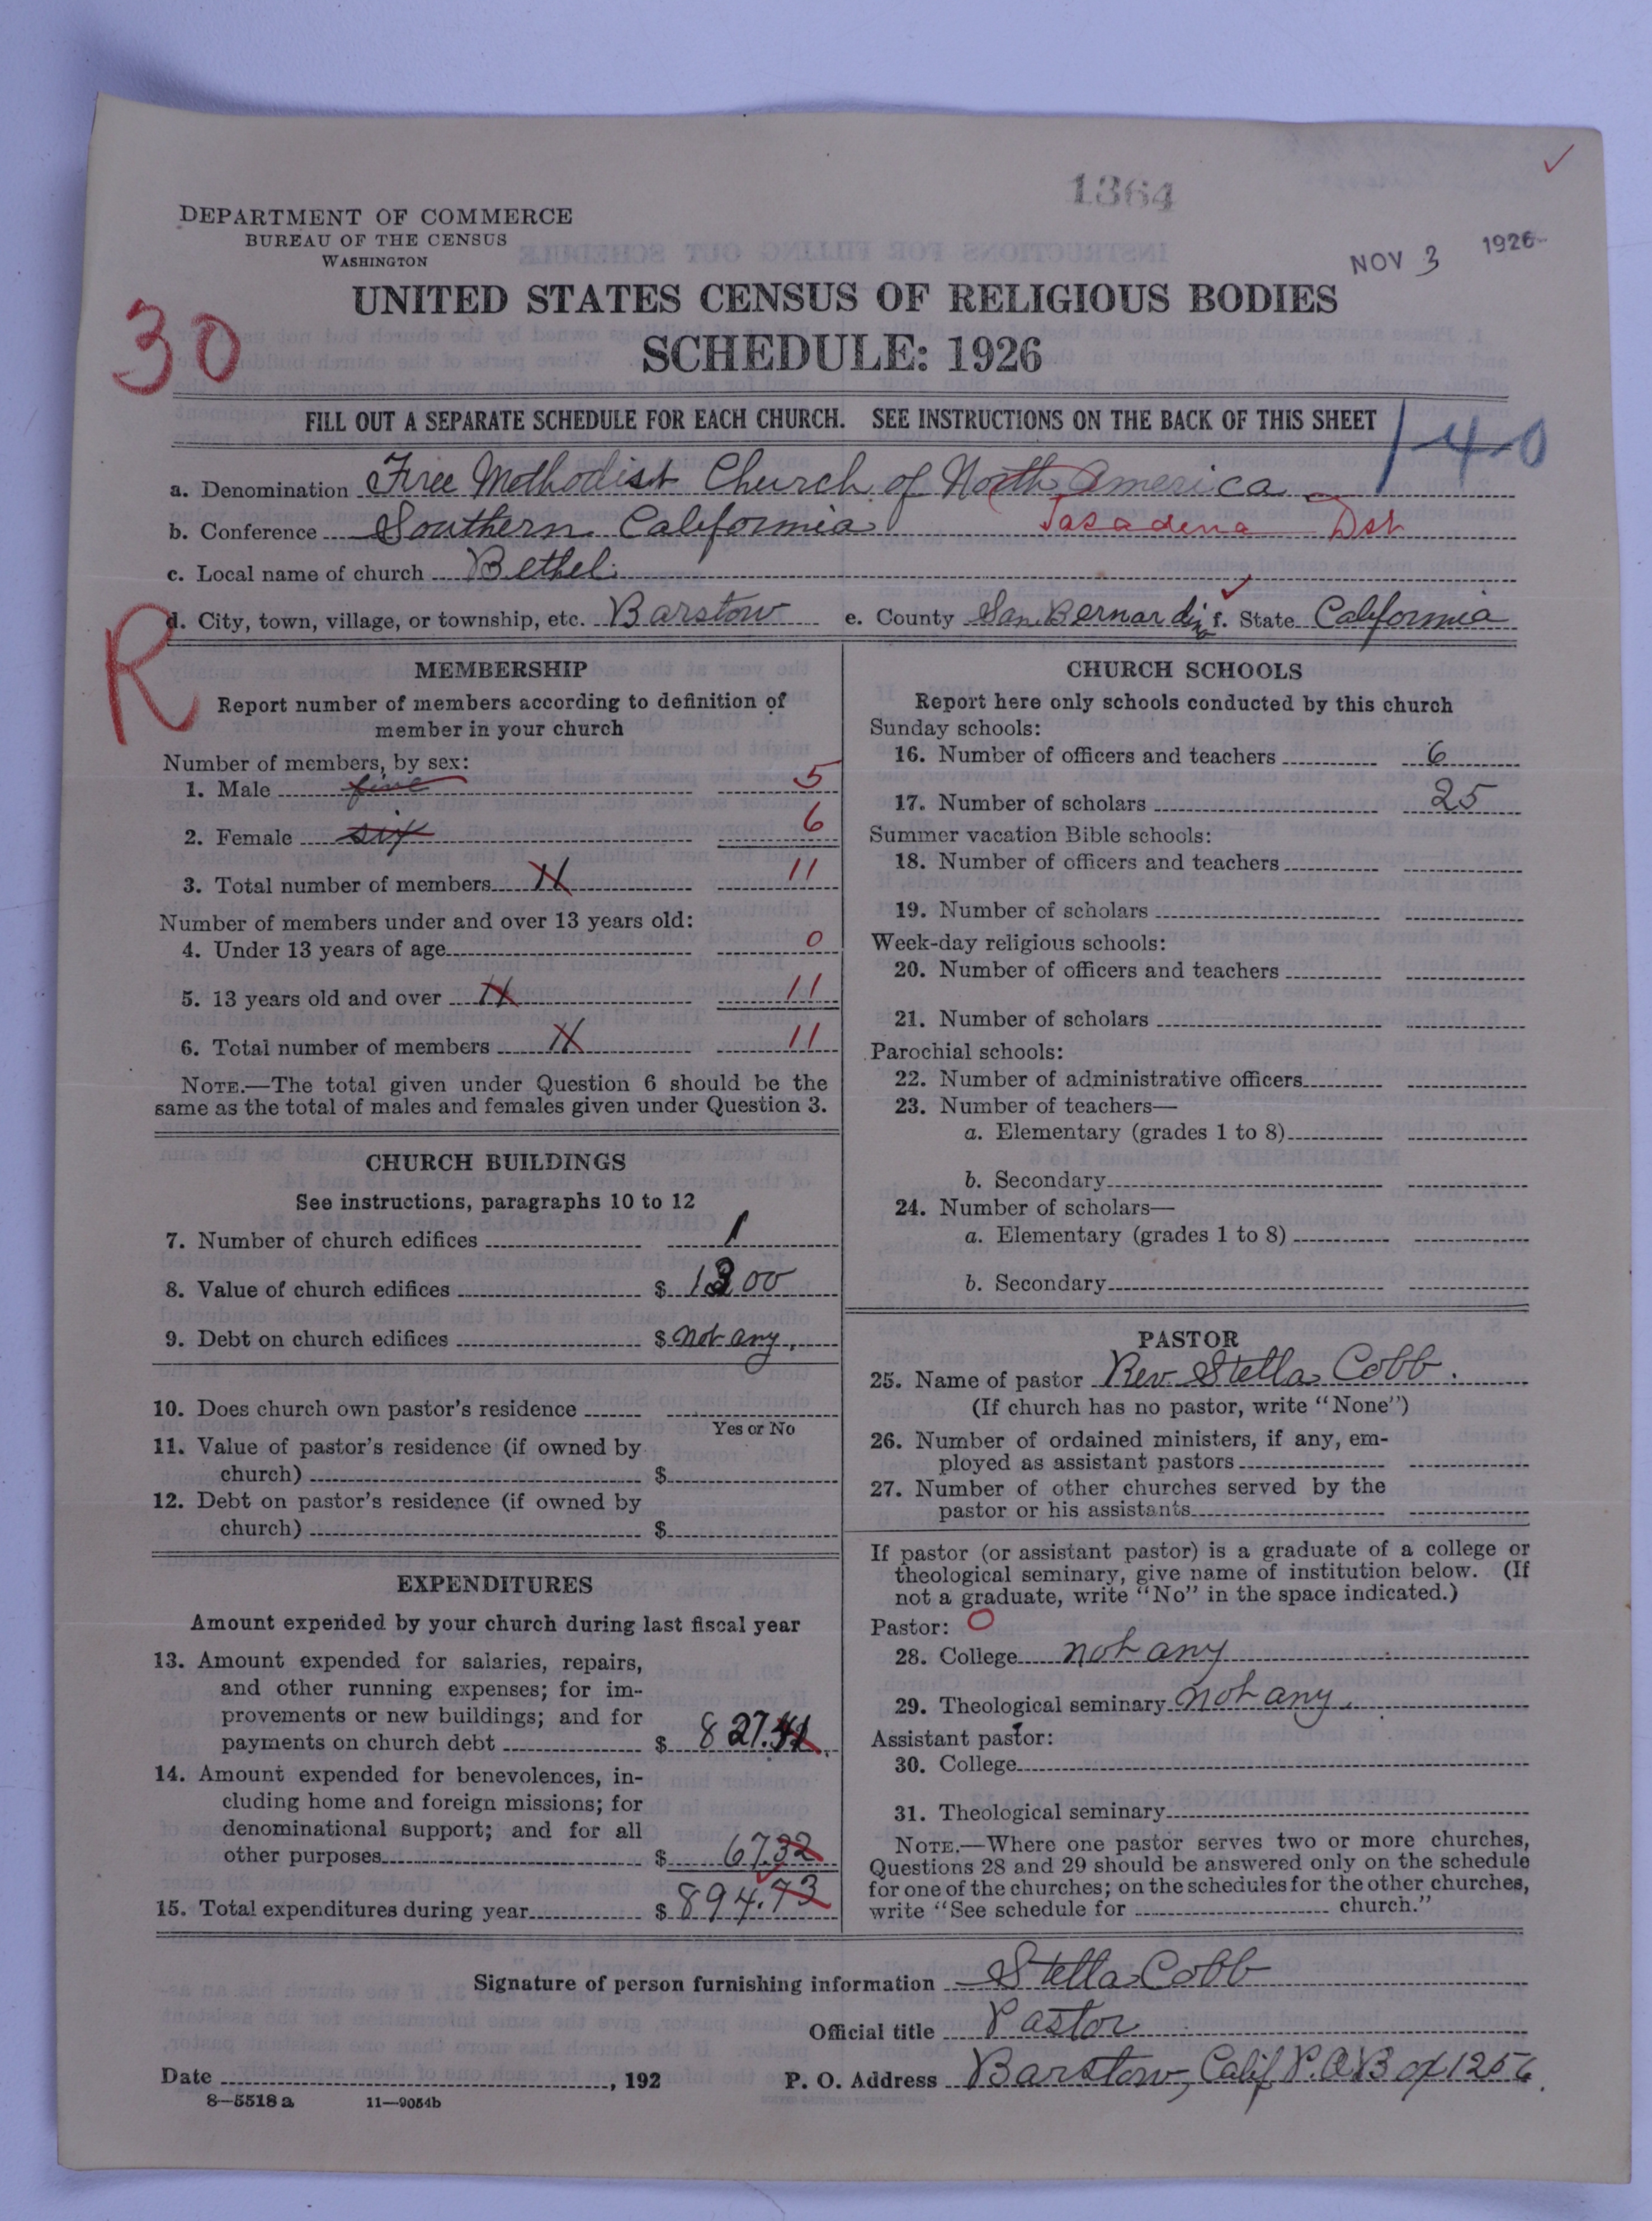 1364
DEPARTMENT OF COMMERCE
BUREAU OF THE CENSUS
WASHINGTON
NOV 3 1926
UNITED STATES CENSUS OF RELIGIOUS BODIES
30
SCHEDULE: 1926
FILL OUT A SEPARATE SCHEDULE FOR EACH CHURCH. SEE INSTRUCTIONS ON THE BACK OF THIS SHEET
1-40
a. Denomination Free Methodist Church of North America
b. Conference Southern California Pasadena Dst
c. Local name of church Bethel
d. City, town, village, or township, etc. Barstow e. County San Bernardino f. State California
R
MEMBERSHIP
Report number of members according to definition of
member in your church
Number of members, by sex:
1. Male five 5
2. Female six 6
3. Total number of members 11 11
Number of members under and over 13 years old:
4. Under 13 years of age 0
5. 13 years old and over 11 11
6. Total number of members 11 11
NOTE.—The total given under Question 6 should be the
same as the total of males and females given under Question 3.
CHURCH BUILDINGS
See instructions, paragraphs 10 to 12
7. Number of church edifices 1
8. Value of church edifices $ 1300
9. Debt on church edifices $ not any.
10. Does church own pastor's residence
Yes or No
11. Value of pastor's residence (if owned by
church) $
12. Debt on pastor's residence (if owned by
church) $
EXPENDITURES
Amount expended by your church during last fiscal year
13. Amount expended for salaries, repairs,
and other running expenses; for im-
provements or new buildings; and for
payments on church debt $ 827.41
14. Amount expended for benevolences, in-
cluding home and foreign missions; for
denominational support; and for all
other purposes $ 67.32
15. Total expenditures during year $ 894.73
CHURCH SCHOOLS
Report here only schools conducted by this church
Sunday schools:
16. Number of officers and teachers 6
17. Number of scholars 25
Summer vacation Bible schools:
18. Number of officers and teachers
19. Number of scholars
Week-day religious schools:
20. Number of officers and teachers
21. Number of scholars
Parochial schools:
22. Number of administrative officers
23. Number of teachers—
a. Elementary (grades 1 to 8)
b. Secondary
24. Number of scholars—
a. Elementary (grades 1 to 8)
b. Secondary
PASTOR
25. Name of pastor Rev Stella Cobb.
(If church has no pastor, write "None")
26. Number of ordained ministers, if any, em-
ployed as assistant pastors
27. Number of other churches served by the
pastor or his assistants
If pastor (or assistant pastor) is a graduate of a college or
theological seminary, give name of institution below. (If
not a graduate, write "No" in the space indicated.)
Pastor: 0
28. College not any
29. Theological seminary not any.
Assistant pastor:
30. College
31. Theological seminary
NOTE.—Where one pastor serves two or more churches,
Questions 28 and 29 should be answered only on the schedule
for one of the churches; on the schedules for the other churches,
write "See schedule for church."
Signature of person furnishing information Stella Cobb
Official title Pastor
Date , 192 P. O. Address Barstow, Calif P.O Box 1256.
8—5518 a 11—9054b